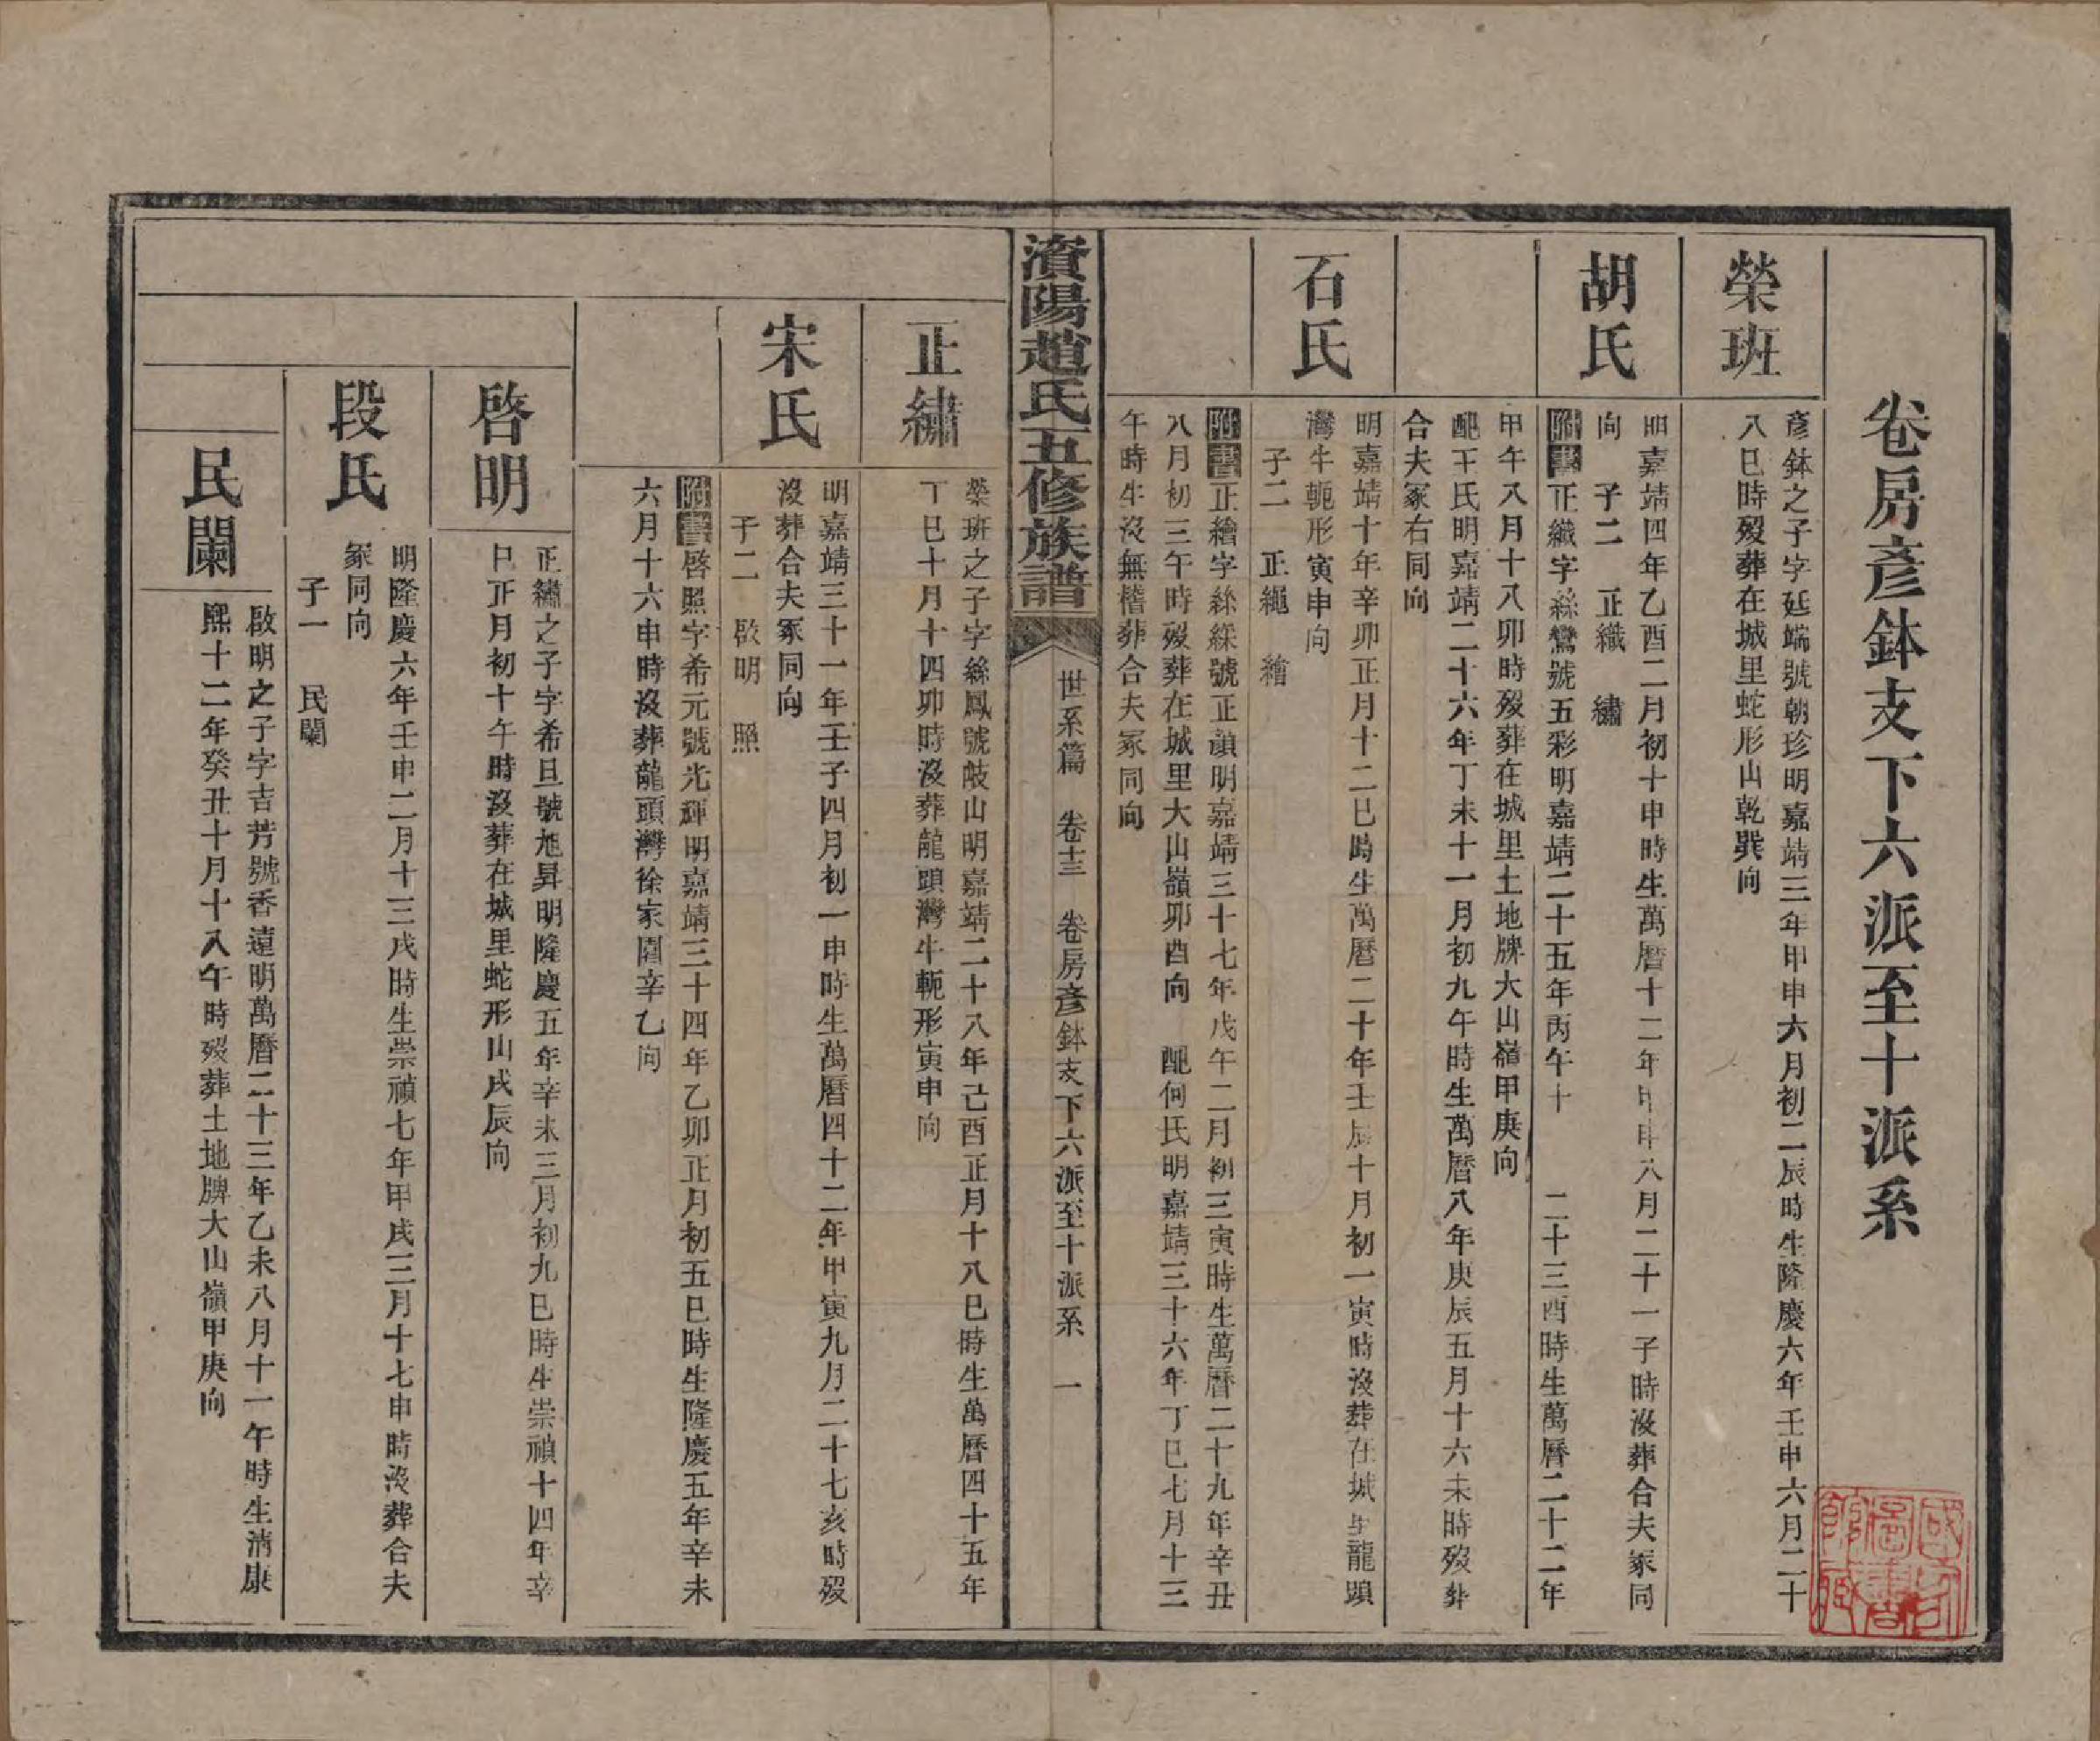 卷房彥鉢支下六派至十派系
榮班
彥鉢之子字廷端號朝珍明嘉靖三年甲申六月初二辰時生隆慶六年壬申六月二十
八巳時歿葬在城里蛇形山乾巽向
胡氏
明嘉靖四年乙酉二月初十申時生萬曆十二年甲申八月二十一子時沒葬合夫冢同
向 子二 正織 繡
附書正織字絲鸞號五彩明嘉靖二十五年丙午十 二十三酉時生萬曆二十二年
甲午八月十八卯時歿葬在城里土地牌大山嶺甲庚向
配王氏明嘉靖二十六年丁未十一月初九午時生萬曆八年庚辰五月十六未時歿葬
合夫冢右同向
石氏
明嘉靖十年辛卯正月十二巳時生萬曆二十年壬辰十月初一寅時沒葬在城里龍頭
灣牛軛形寅申向
子二 正繩 繪
附書正繪字絲綵號正韻明嘉靖三十七年戊午二月初三寅時生萬曆二十九年辛丑
八月初三午時歿葬在城里大山嶺卯酉向 配何氏明嘉靖三十六年丁巳七月十三
午時生沒無稽葬合夫冢同向
濱陽趙氏五修族譜 世系篇 卷十三 卷房彥鉢支下六派至十派系 一
正繡
榮班之子字絲鳳號岐山明嘉靖二十八年己酉正月十八巳時生萬曆四十五年
丁巳十月十四卯時沒葬龍頭灣牛軛形寅申向
宋氏
明嘉靖三十一年壬子四月初一申時生萬曆四十二年甲寅九月二十七亥時歿
沒葬合夫冢同向
子二 啟明 照
附書啓照字希元號光輝明嘉靖三十四年乙卯正月初五巳時生隆慶五年辛未
六月十六申時沒葬龍頭灣徐家園辛乙向
啓明
正繡之子字希旦號旭昇明隆慶五年辛未三月初九巳時生崇禎十四年辛
巳正月初十午時沒葬在城里蛇形山戌辰向
段氏
明隆慶六年壬申二月十三戌時生崇禎七年甲戌三月十七申時沒葬合夫
冢同向
子一 民闌
民闌
啟明之子字吉芳號香遠明萬曆二十三年乙未八月十一午時生清康
熙十二年癸丑十月十八午時歿葬土地牌大山嶺甲庚向